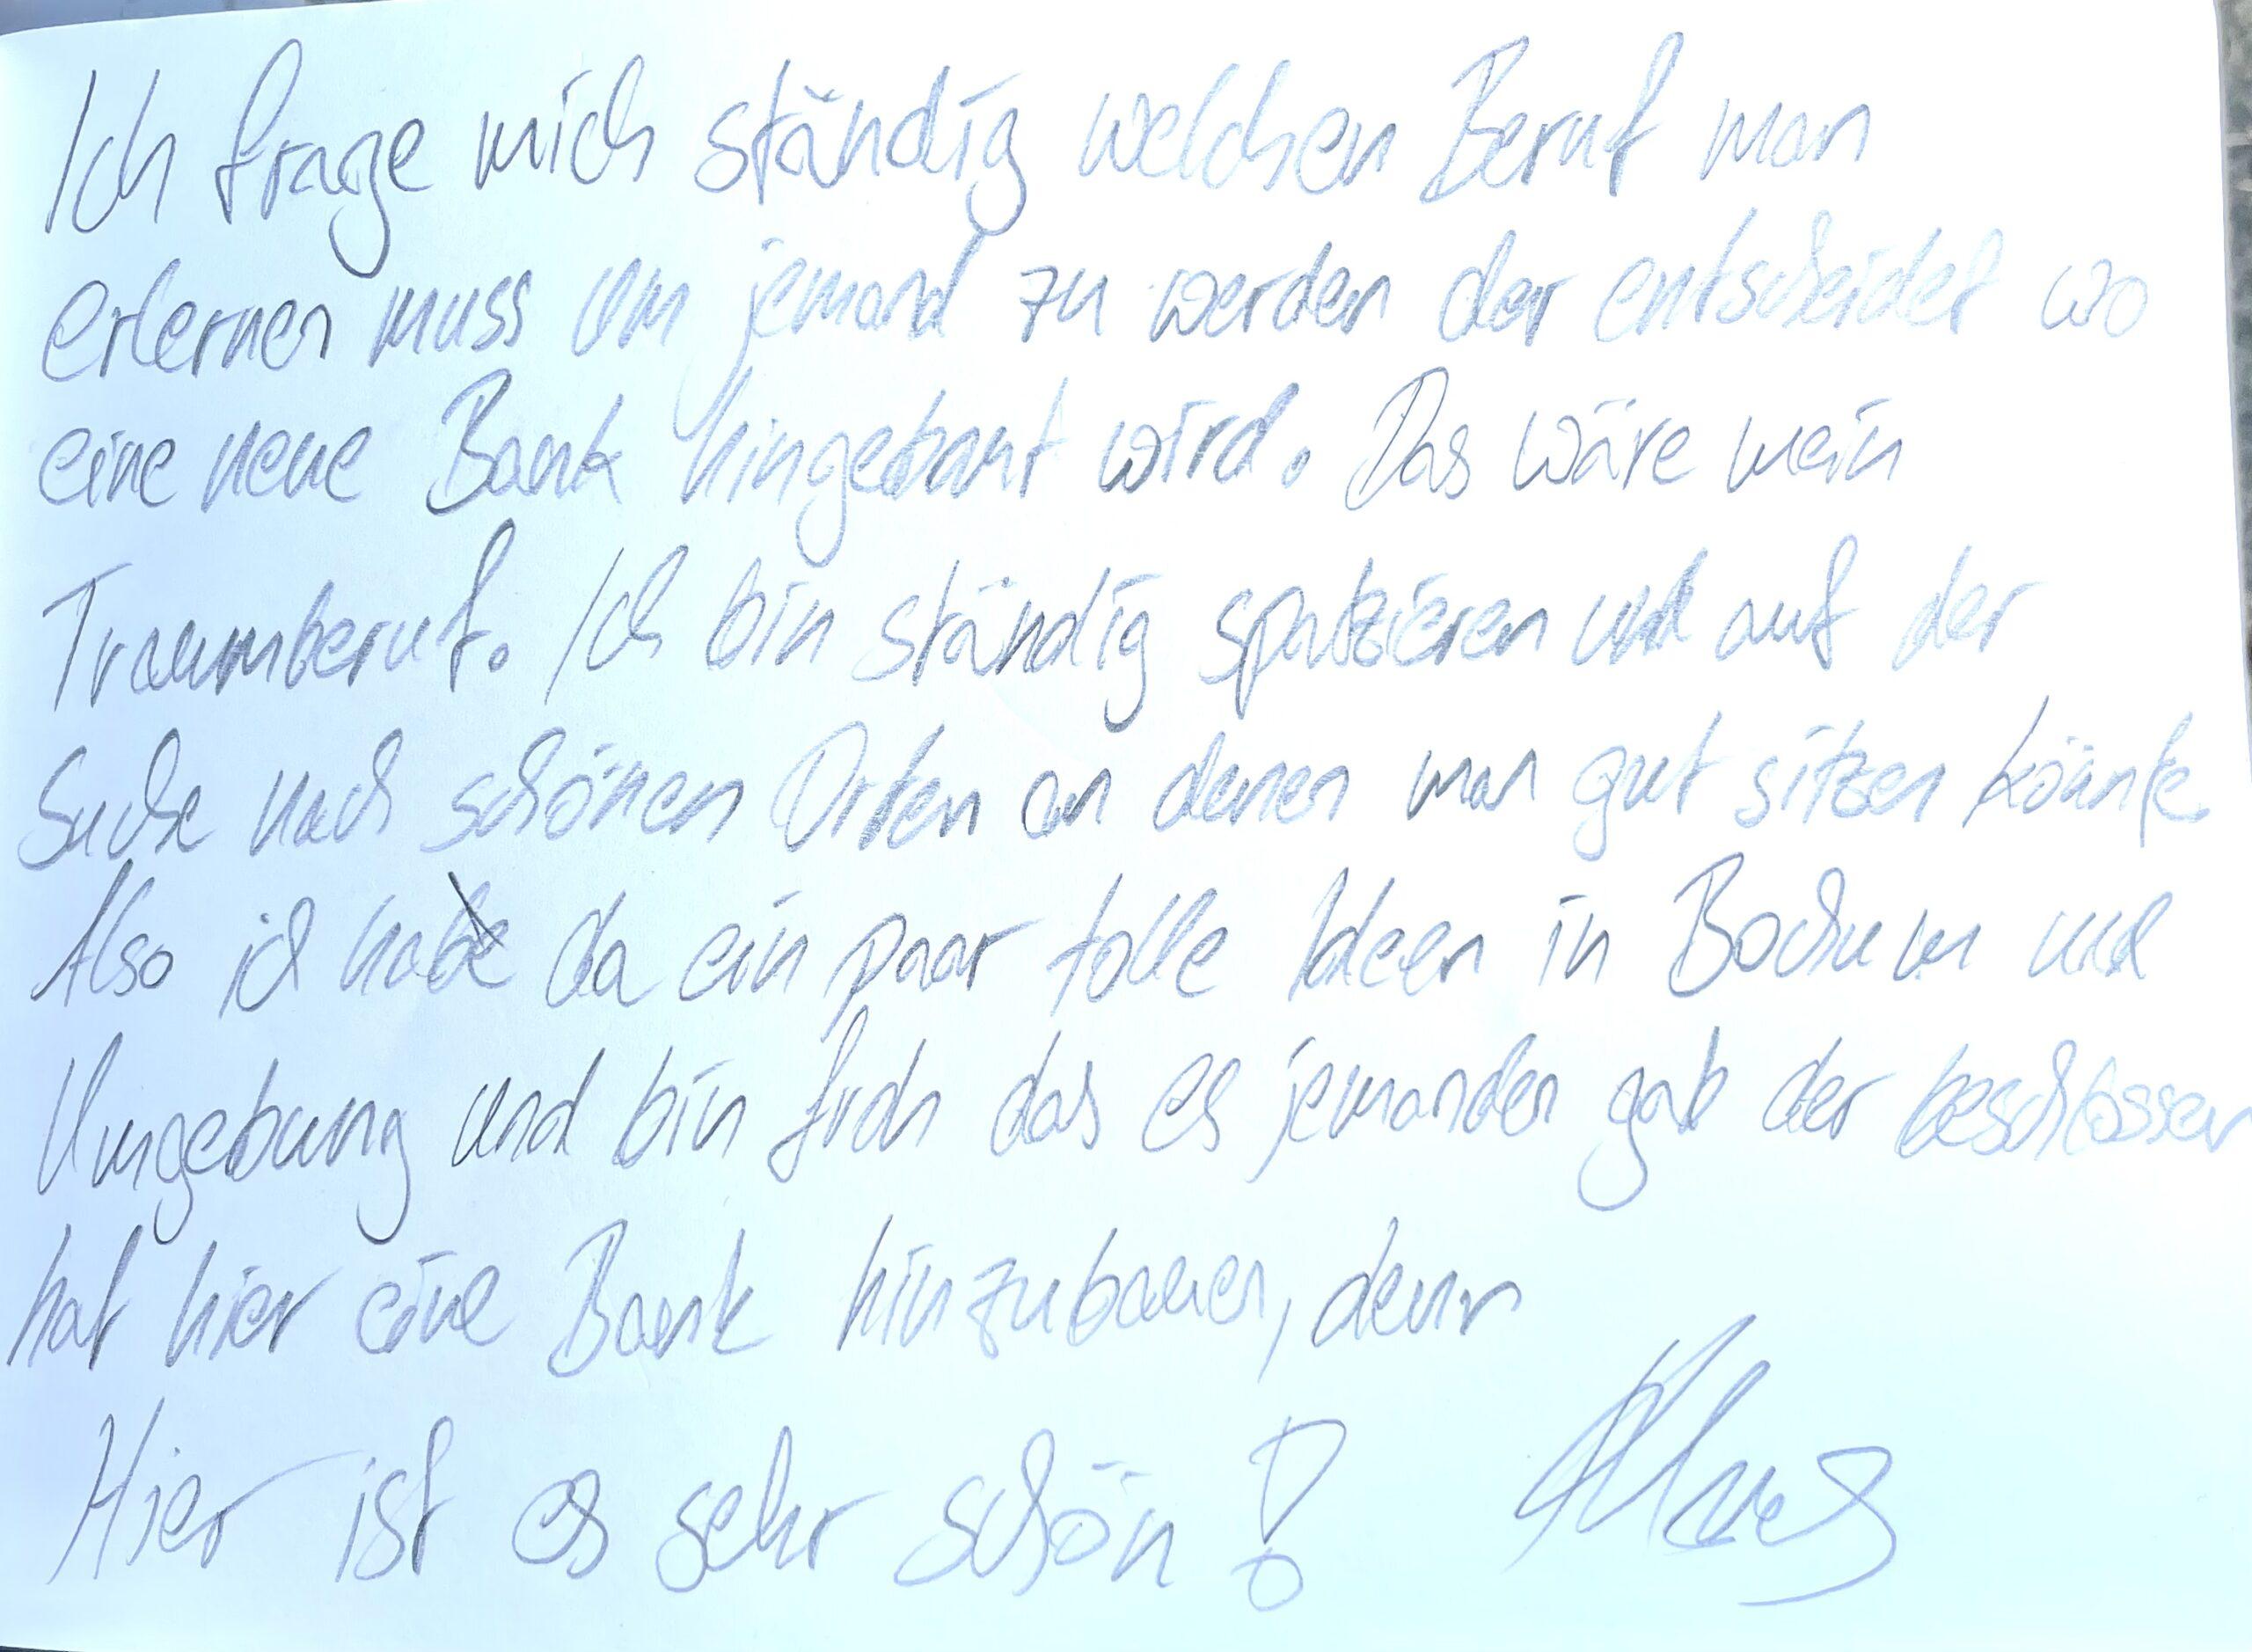 Ich frage mich ständig welchen Beruf man
erlernen muss um jemand zu werden der entscheidet wo
eine neue Bank hingebaut wird. Das wäre mein
Traumberuf. Ich bin ständig spatzieren und auf der
Suche nach schönen Orten an denen man gut sitzen könnte.
Also ich habe da ein paar tolle Ideen in Bochum und
Umgebung und bin froh das es jemanden gab der beschlossen
hat hier eine Bank hinzubauen, denn
Hier ist es sehr schön!